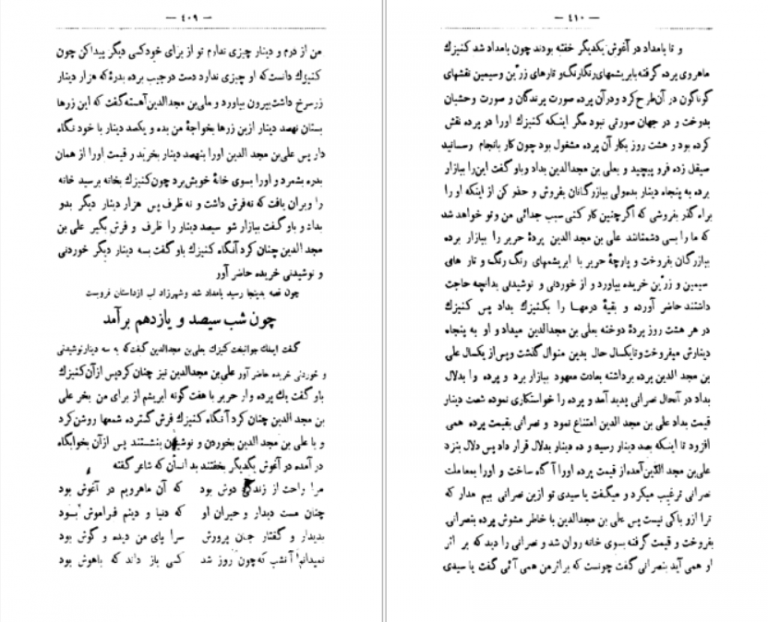 — ٤٠٩ —
من از درم و دینار چیزی ندارم تو از برای خود کسی دیگر پیدا کن چون
کنیزك دانست که او چیزی ندارد دست در جیب برده بدرۀ که هزار دینار
زر سرخ داشت بیرون بیاورد و علی بن مجدالدین آهسته گفت که این زرها
بستان نهصد دینار ازین زرها بخواجۀ من بده و یکصد دینار با خود نگاه
دار پس علی بن مجد الدین اورا بنهصد دینار بخرید و قیمت اورا از همان
بدره بشمرد و اورا بسوی خانۀ خویش برد چون کنیزك بخانه برسید خانه
را ویران یافت که نه فرش داشت و نه ظرف پس هزار دینار دیگر بدو
بداد و باو گفت ببازار شو سیصد دینار را ظرف و فرش بگیر علی بن
مجد الدین چنان کرد آنگاه کنیزك باو گفت سه دینار دیگر خوردنی
و نوشیدنی خریده حاضر آور
چون قصه بدینجا رسید بامداد شد و شهرزاد لب ازداستان فروبست
چون شب سیصد و یازدهم برآمد
گفت ایملك جوانبخت کنیزك بعلی بن مجدالدین گفت که به سه دینار نوشیدنی
و خوردنی خریده حاضر آور علی بن مجدالدین نیز چنان کرد پس از آن کنیزك
باو گفت یك پرده وار حریر با هفت گونه ابریشم از برای من بخر علی
بن مجد الدین چنان کرد آنگاه کنیزك فرش گسترده شمعها روشن کرد
و با علی بن مجد الدین بخوردن و نوشیدن بنشستند پس ازآن بخوابگاه
در آمده در آغوش یکدیگر بخفتند بد انسان که شاعر گفته
مرا راحت از زندگی دوش بود که آن ماهرویم در آغوش بود
چنان مست دیدار و حیران او که دنیا و دینم فراموش بود
بدیدار و گفتار جان پرورش سرا پای من دیده و گوش بود
نمیدانم آنشب که چون روز شد کسی باز داند که باهوش بود
— ٤١٠ —
و تا بامداد در آغوش یکدیگر خفته بودند چون بامداد شد کنیزك
ماهروی پرده گرفته با بریشمهای رنگارنگ و تارهای زرین و سیمین نقشهای
گوناگون در آن طرح کرد و درآن پرده صورت پرندگان و صورت وحشیان
بدوخت و در جهان صورتی نبود مگر اینکه کنیزك اورا در پرده نقش
کرده بود و هشت روز بکار آن پرده مشغول بود چون کار بانجام رسانید
صیقل زده فرو پیچید و بعلی بن مجدالدین بداد و باو گفت این را ببازار
برده به پنجاه دینار بدمولی ببازرگانان بفروش و حذر کن از اینکه او را
براه گذر بفروشی که اگر چنین کار کنی سبب جدائی من و تو خواهد شد
که ما را بسی دشمنانند علی بن مجد الدین پردۀ حریر را ببازار برده
ببازرگان بفروخت و پارچۀ حریر با ابریشمهای رنگ رنگ و تار های
سیمین و زرین خریده بیاورد و از خوردنی و نوشیدنی بدانچه حاجت
داشتند حاضر آورده و بقیۀ درمها را بکنیزك بداد پس کنیزك
در هر هشت روز پردۀ دوخته بعلی بن مجدالدین میداد و او به پنجاه
دینارش میفروخت و تا یکسال حال بدین منوال گذشت و پس از یکسال علی
بن مجد الدین پرده برداشته بعادت معهود ببازار برد و پرده را بدلال
بداد در آنحال نصرانی پدید آمد و پرده را خواستکاری نموده شصت دینار
قیمت بداد علی بن مجد الدین امتناع نمود و نصرانی بقیمت پرده همی
افزود تا اینکه بصد دینار رسید و ده دینار بدلال قرار داد پس دلال بنزد
علی بن مجد الدین آمده از قیمت پرده اورا آگاه ساخت و اورا بمعاملت
نصرانی ترغیب میکرد و میگفت یا سیدی تو ازین نصرانی بیم مدار که
ترا ازو باکی نیست پس علی بن مجدالدین با خاطر مشوش پرده بنصرانی
بفروخت و قیمت گرفته بسوی خانه روان شد و نصرانی را دید که بر اثر
او همی آید بنصرانی گفت چونست که براثر من همی آئی گفت یا سیدی